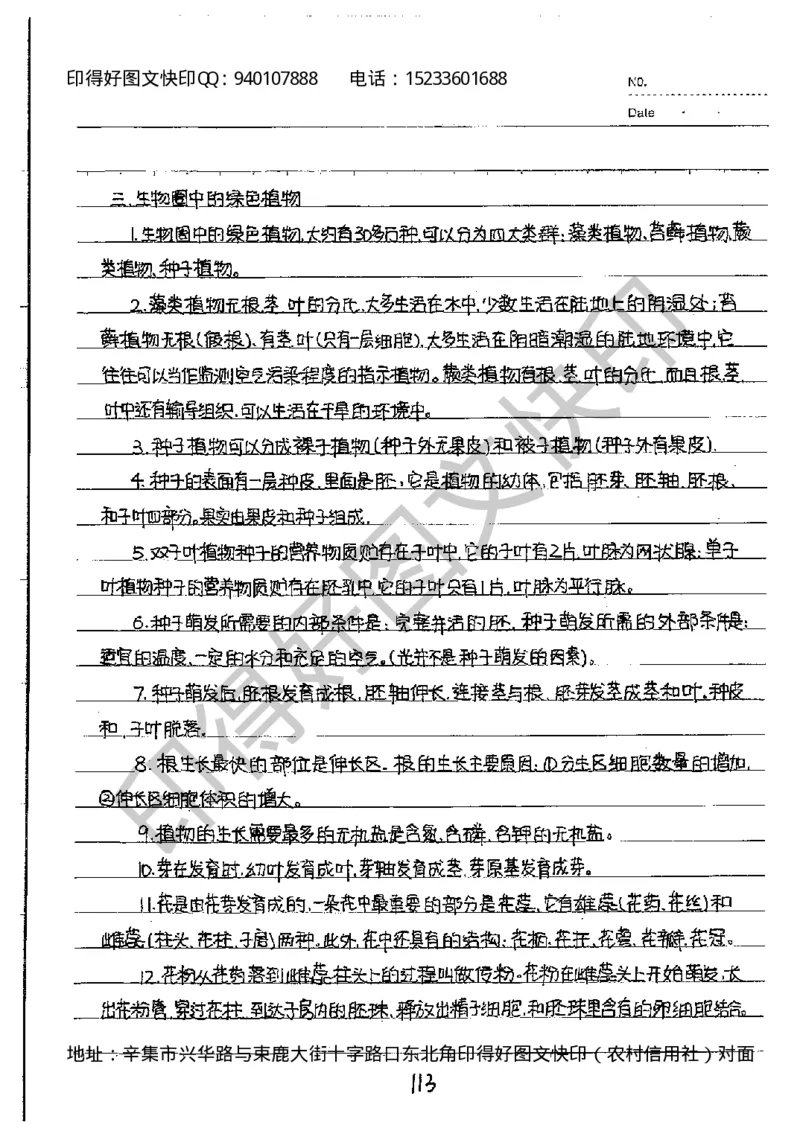 印得好图文快印QQ：940107888 电话：15233601688
NO.
Date
三、生物圈中的绿色植物
1.生物圈中的绿色植物,大约有30多万种,可以分为四大类群:藻类植物、苔藓植物、蕨
类植物、种子植物。
2.藻类植物无根、茎、叶的分化,大多生活在水中,少数生活在陆地上的阴湿处;苔
藓植物无根(假根)、有茎、叶(只有一层细胞),大多生活在阴暗潮湿的陆地环境中,它
往往可以当作监测空气污染程度的指示植物。蕨类植物有根、茎、叶的分化,而且根、茎、
叶中还有输导组织,可以生活在干旱的环境中。
3.种子植物可以分成裸子植物(种子外无果皮)和被子植物(种子外有果皮).
4.种子的表面有一层种皮,里面是胚,它是植物的幼体,包括胚芽、胚轴、胚根、
和子叶四部分。果实由果皮和种子组成.
5.双子叶植物种子的营养物质贮存在子叶中,它的子叶有2片,叶脉为网状腺;单子
叶植物种子的营养物质贮存在胚乳中,它的子叶只有1片,叶脉为平行脉。
6.种子萌发所需要的内部条件是:完整并活的胚,种子萌发所需的外部条件是:
适宜的温度、一定的水分和充足的空气。(光并不是种子萌发的因素)。
7.种子萌发后,胚根发育成根,胚轴伸长,连接茎与根、胚芽发茎成茎和叶。种皮
和,子叶脱落。
8.根生长最快的部位是伸长区.根的生长主要原因:①分生区细胞数量的增加,
②伸长区细胞体积的增大。
9.植物的生长需要最多的无机盐是含氮、含磷、含钾的无机盐。
10.芽在发育时,幼叶发育成叶,芽轴发育成茎,芽原基发育成芽。
11.花是由花芽发育成的,一朵花中最重要的部分是花蕊,它有雄蕊(花药、花丝)和
雌蕊(柱头、花柱、子房)两种。此外,花中还具有的结构:花柄、花托、花萼、花瓣、花冠。
12.花粉从花药落到雌蕊柱头上的过程叫做传粉。花粉在雌蕊头上开始萌发,长
出花粉管,穿过花柱,到达子房内的胚珠、释放出精子细胞,和胚珠里含有的卵细胞结合。
地址：辛集市兴华路与束鹿大街十字路口东北角印得好图文快印（农村信用社）对面
113
印得好图文快印